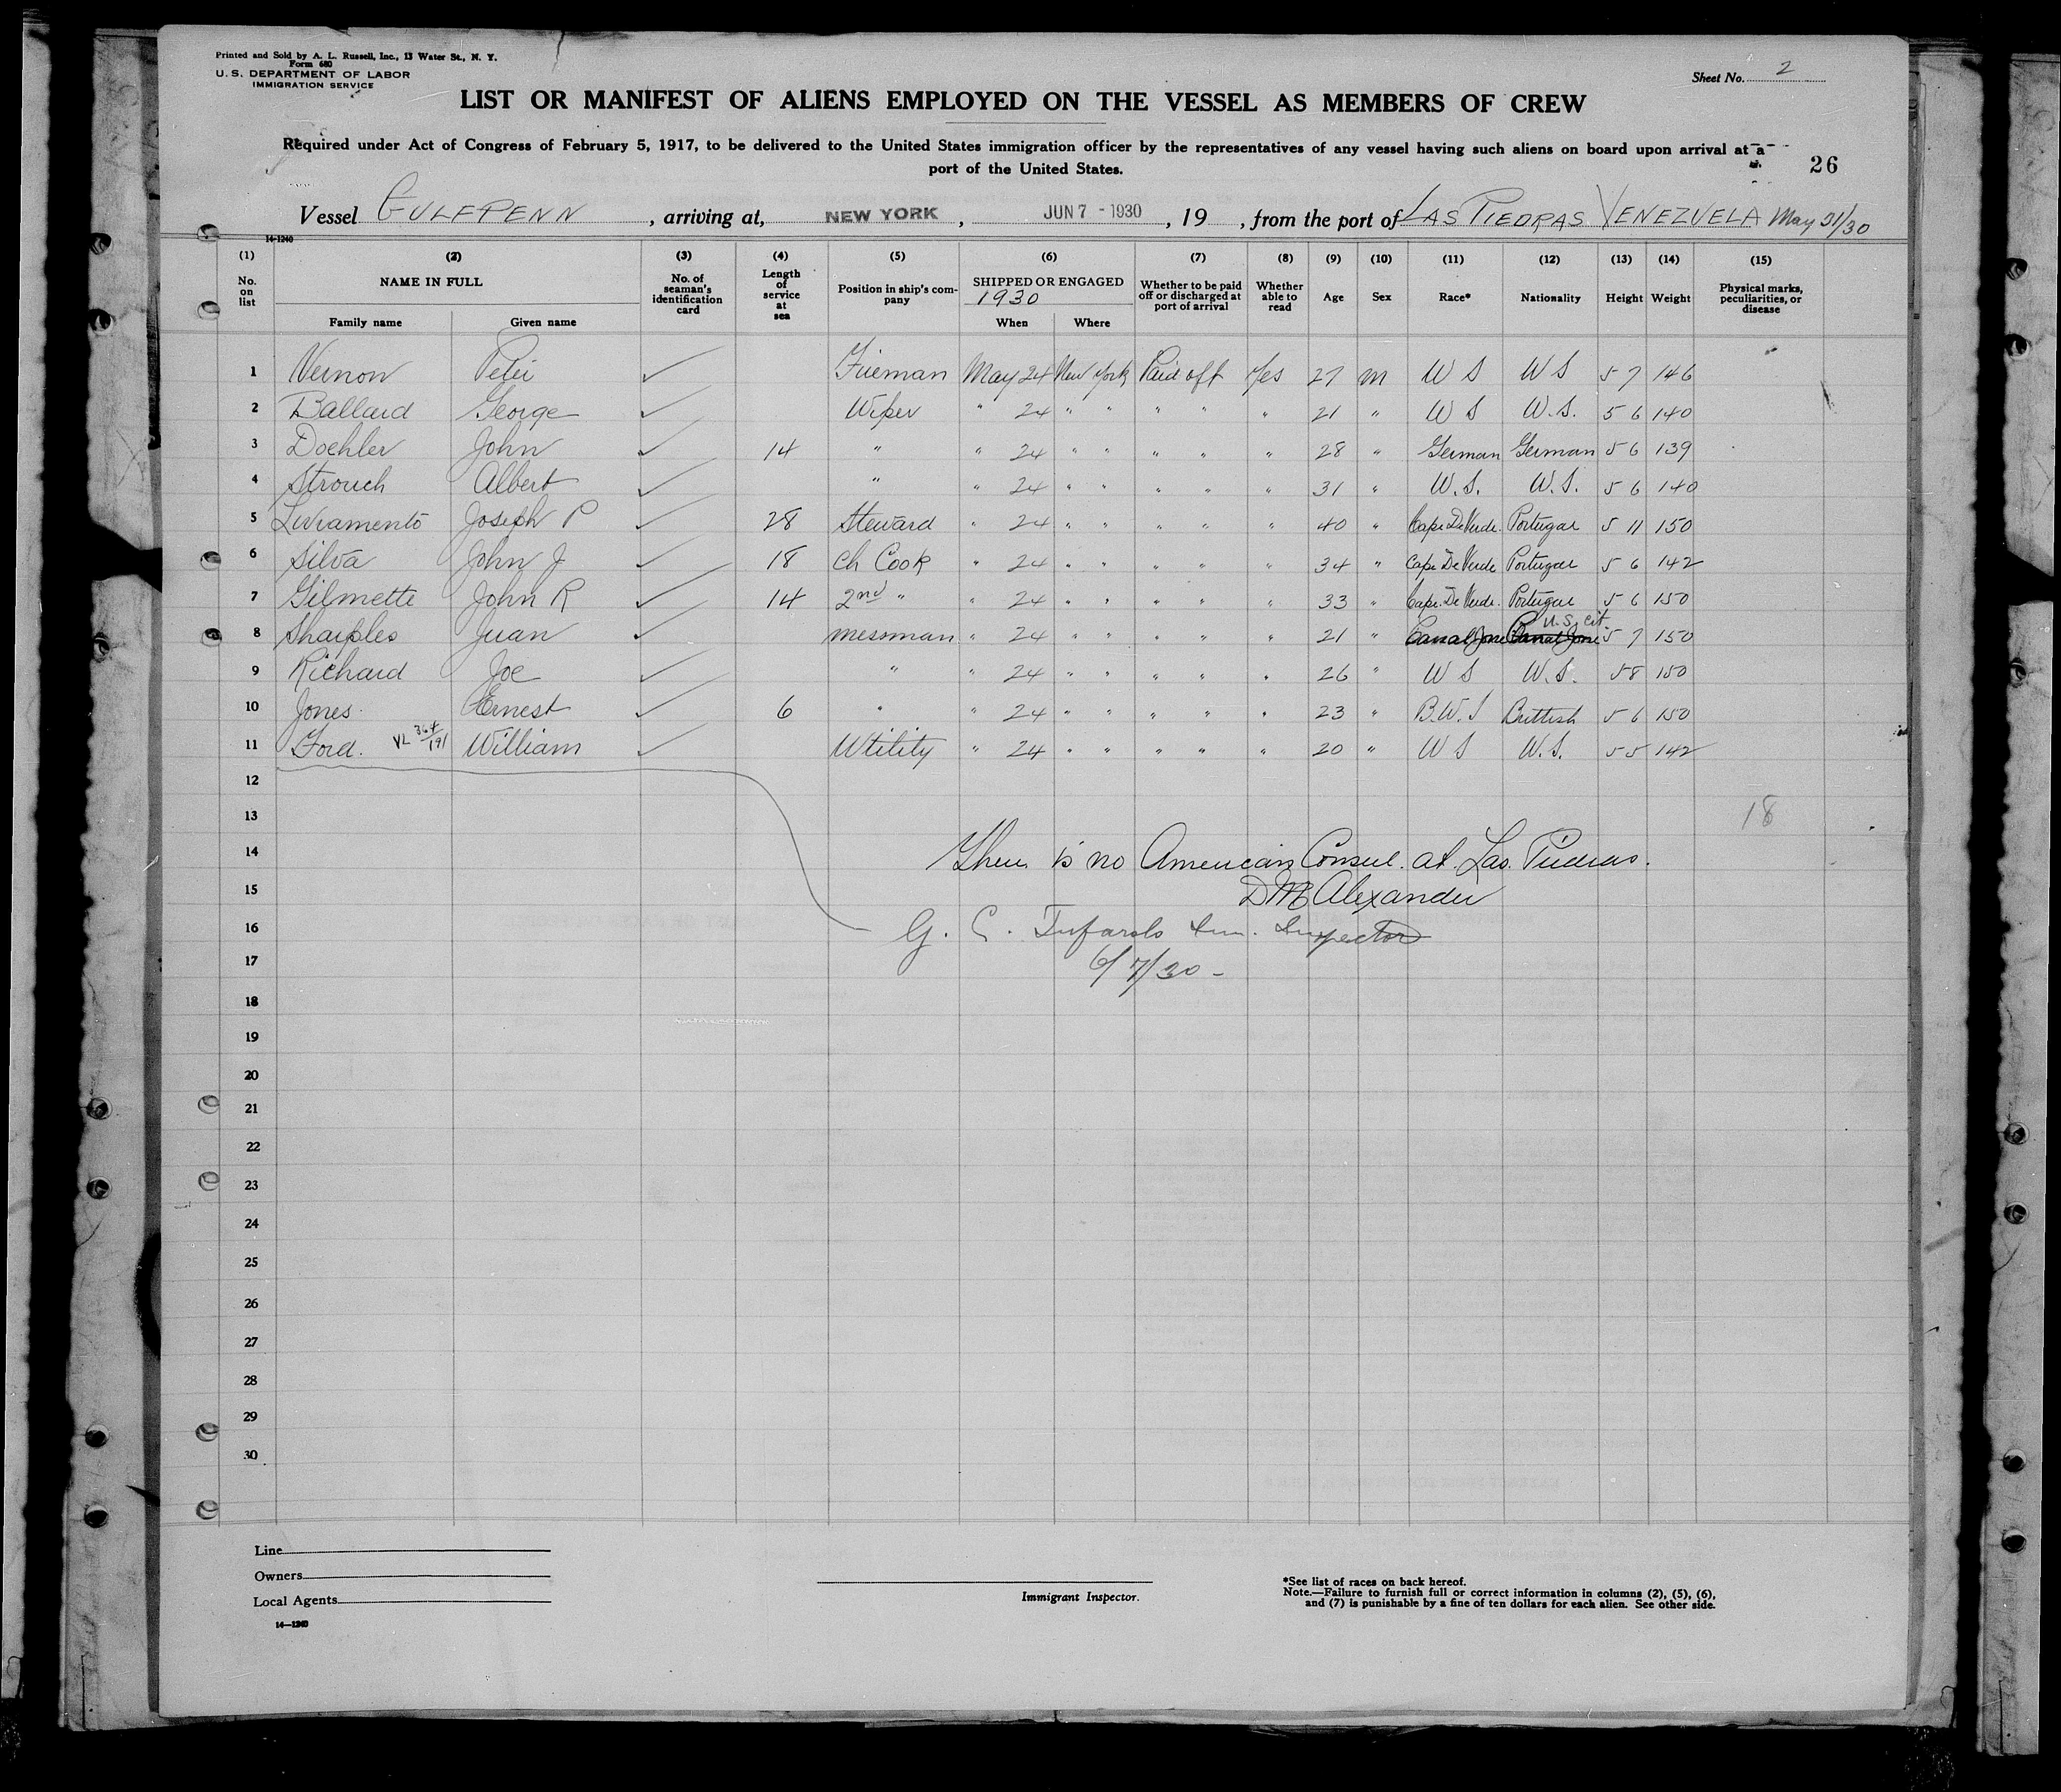 Printed and Sold by A. L. Russell, Inc., 13 Water St., N. Y.
Form 680
U. S. DEPARTMENT OF LABOR
IMMIGRATION SERVICE
Sheet No. 2
LIST OR MANIFEST OF ALIENS EMPLOYED ON THE VESSEL AS MEMBERS OF CREW
Required under Act of Congress of February 5, 1917, to be delivered to the United States immigration officer by the representatives of any vessel having such aliens on board upon arrival at a
port of the United States.
26
Vessel GULFPENN, arriving at, NEW YORK, JUN 7 - 1930, 19 , from the port of LAS PIEDRAS VENEZUELA May 31/30
14-1240
(1) (2) (3) (4) (5) (6) (7) (8) (9) (10) (11) (12) (13) (14) (15)
No. on list NAME IN FULL Family name Given name No. of seaman's identification card Length of service at sea Position in ship's company SHIPPED OR ENGAGED 1930 When Where Whether to be paid off or discharged at port of arrival Whether able to read Age Sex Race* Nationality Height Weight Physical marks, peculiarities, or disease
1 Vernon Peter ✓ Fireman May 24 New York Paid off Yes 27 m U S U S 5 7 146
2 Ballard George ✓ Wiper " 24 " " " " " 21 " U S U.S. 5 6 140
3 Doehler John ✓ 14 " " 24 " " " " " 28 " German German 5 6 139
4 Strouch Albert ✓ " " 24 " " " " " 31 " U.S. U.S. 5 6 140
5 Livramento Joseph P ✓ 28 Steward " 24 " " " " " 40 " Cape De Verde. Portugal 5 11 150
6 Silva John J ✓ 18 Ch Cook " 24 " " " " " 34 " Cape De Verde Portugal 5 6 142
7 Gilmette John R ✓ 14 2nd " " 24 " " " " " 33 " Cape De Verde. Portugal 5 6 150
8 Sharples Juan ✓ messman " 24 " " " " " 21 " Canal Zone Canal Zone U.S. cit 5 7 150
9 Richard Joe ✓ " " 24 " " " " " 26 " U S U.S. 5 8 150
10 Jones Ernest ✓ 6 " " 24 " " " " " 23 " B.W.I Brittish 5 6 150
11 Ford. VL 364/191 William ✓ Utility " 24 " " " " " 20 " U S U.S. 5 5 142
12
13 18
14 There is no American Consul at Las Piedras.
15 DM Alexander
16 G. C. Imm. Inspector
17 6/7/30 -
18
19
20
21
22
23
24
25
26
27
28
29
30
Line
Owners
Local Agents
14—1240
Immigrant Inspector.
*See list of races on back hereof.
Note.—Failure to furnish full or correct information in columns (2), (5), (6),
and (7) is punishable by a fine of ten dollars for each alien. See other side.